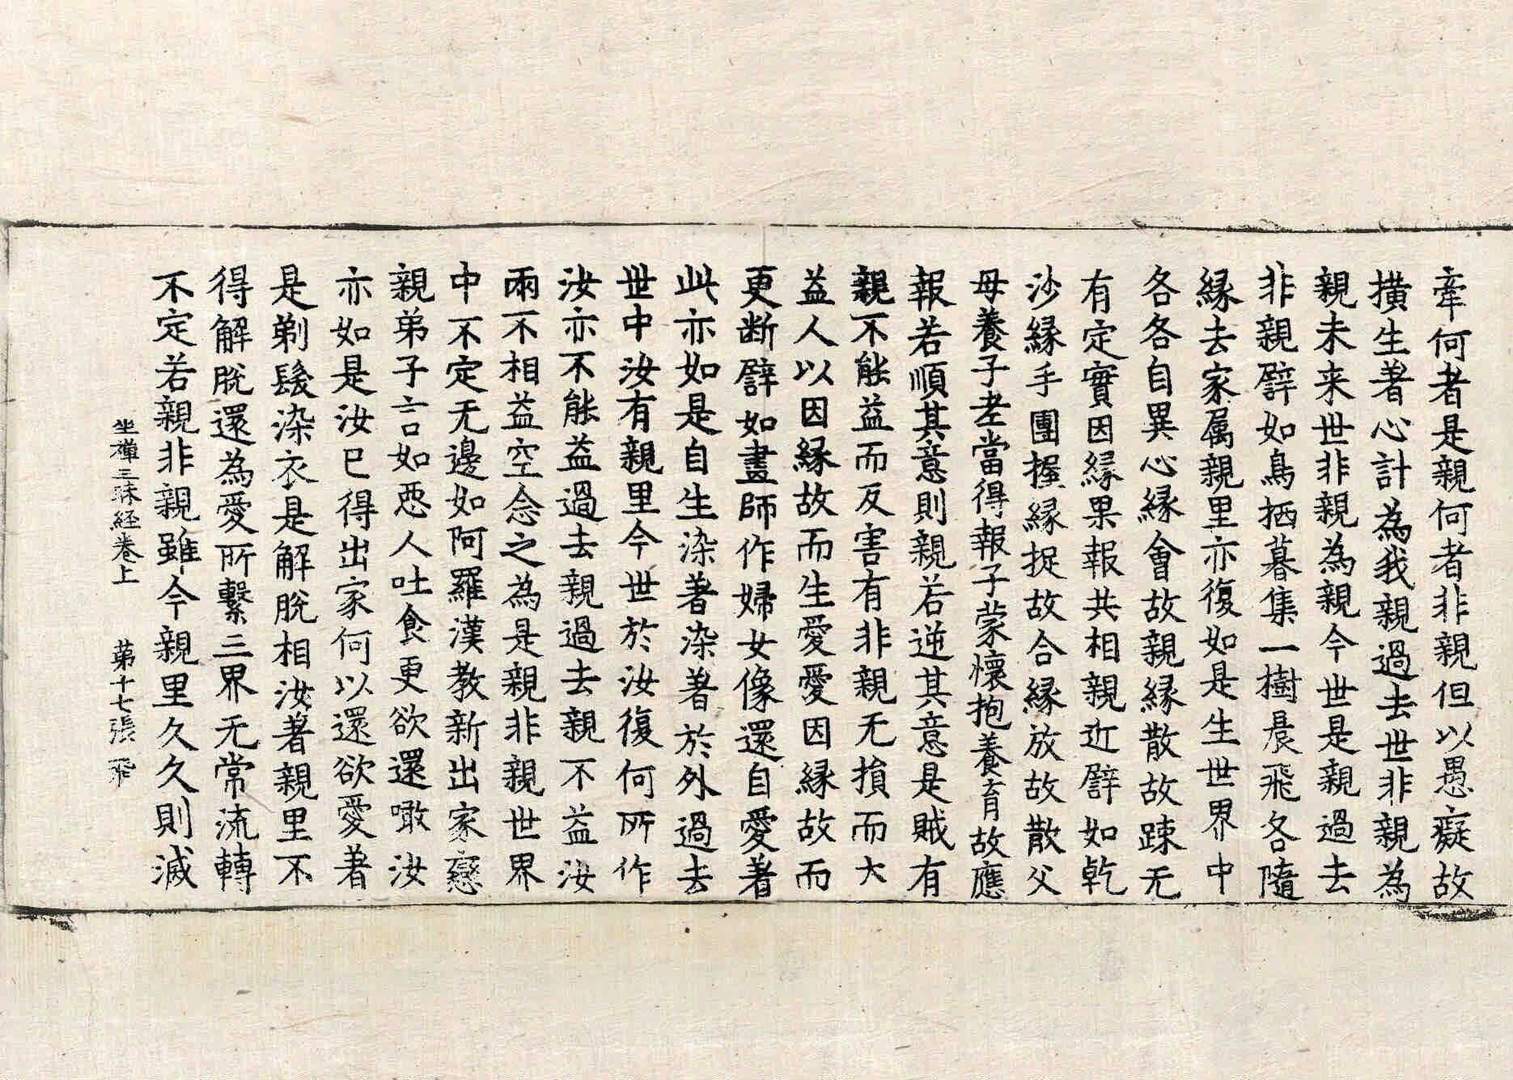 牽何者是親何者非親但以愚癡故
撗生著心計為我親過去世非親為
親未来世非親為親今世是親過去
非親譬如鳥栖暮集一樹晨飛各隨
縁去家属親里亦復如是生世界中
各各自異心縁會故親縁散故踈无
有定實因縁果報共相親近譬如乾
沙縁手團握縁捉故合縁放故散父
母養子老當得報子蒙懷抱養育故應
報若順其意則親若逆其意是賊有
親不能益而反害有非親无損而大
益人以因縁故而生愛愛因縁故而
更断譬如畫師作婦女像還自愛著
此亦如是自生染著染著於外過去
世中汝有親里今世於汝復何所作
汝亦不能益過去親過去親不益汝
兩不相益空念之為是親非親世界
中不定无邊如阿羅漢教新出家戀
親弟子言如惡人吐食更欲還噉汝
亦如是汝已得出家何以還欲愛著
是剃髮染衣是解脫相汝著親里不
得解脫還為愛所繫三界无常流轉
不定若親非親雖今親里久久則滅
坐禪三昧経卷上 第十七張 飛